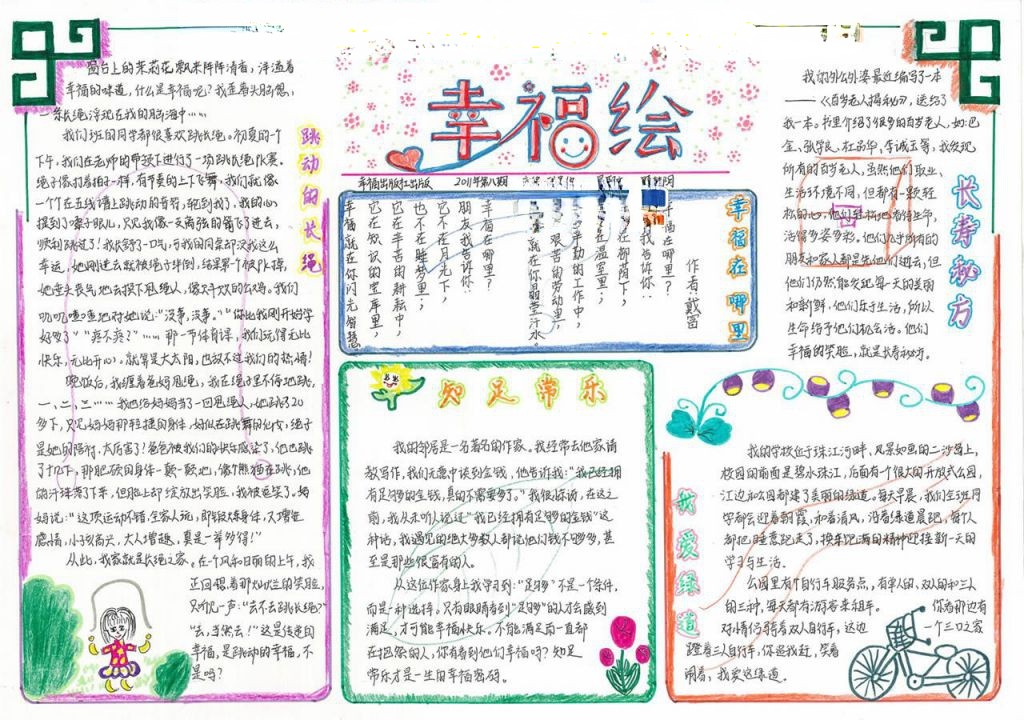 幸福绘
幸福出版社出版 2011年第八期
跳动的长绳
窗台上的茉莉花飘来阵阵清香,洋溢着
幸福的味道,什么是幸福呢?我歪着头脑想,
一条长绳浮现在我的脑海中……
我们班的同学都很喜欢跳长绳。初夏的一个
下午,我们在老师的带领下进行了一项跳长绳比赛。
绳子像打着拍子一样,有节奏的上下飞舞,我们就像
一个个在五线谱上跳动的音符,轮到我了,我的心
提到了嗓子眼儿,只见我像一支离弦的箭飞了进去,
顺利跳过了!我长舒了一口气,可我的同桌却没我这么
幸运,她刚进去就被绳子绊倒,结果第一个被淘汰,
她垂头丧气地去接下甩绳人,像只斗败的公鸡。我们
叽叽喳喳地对她说:“没事,没事。”“你比我刚开始学
好多了”“疼不疼?”……那一节体育课,我们玩得无比
快乐,无比开心,就算是大太阳,也敌不过我们的热情!
晚饭后,我缠着爸妈甩绳,我在绳子里不停地跳,
一、二、三……我也给妈妈当了一回甩绳人,她跳了20
多下,只见妈妈那轻捷的身体,好似在跳舞的仙女,绳子
是她的陪衬,太厉害了!爸爸被我们的快乐感染了,他也跳
了十几下,那肥硕的身体一颤一颤地,像个熊猫在跳,他
的汗珠落了下来,但脸上却绽放出笑脸,我被逗笑了。妈
妈说:“这项运动不错,全家人玩,即锻炼身体,又增进
感情,小孩省天,大人增趣,真是一举多得!”
从此,我家就是长绳之家。在个风和日丽的上午,我
正回想着那灿烂的笑脸,
只听见一声:“去不去跳长绳?”
“去,当然去!”这是传递的
幸福,是跳动的幸福,不
是吗?
幸福在哪里
作者:戴富
幸福在哪里?
朋友我告诉你:
它不在月光下,
也不在睡梦里;
它在辛苦的耕耘中,
它在知识的宝库里,
幸福就在你闪光智慧
知足常乐
我的邻居是一名著名的作家。我经常去他家请
教写作,我们无意中谈到金钱,他告诉我:“我已经拥
有足够的金钱,真的不需要多了。”我很惊讶,在这之
前,我从未听人说过“我已经拥有足够的金钱”这
种话,我遇见的绝大多数人都说他们钱不够多,甚
至是那些很富有的人。
从这位作家身上我学习到:“足够”不是一个条件,
而是一种选择。只有眼睛看到“足够”的人才会感到
满足,才可能幸福快乐。不能满足而一直都
在抱怨的人,你有看到他们幸福吗?知足
常乐才是一生的幸福密码。
长寿秘方
我的外公外婆最近编写了一本
——《百岁老人揭秘》,送给了
我一本。书里介绍了很多的百岁老人,如:巴
金、张学良、杜品华、李诚玉等,我发现
所有的百岁老人,虽然他们职业、
生活环境不同,但都有一颗轻
松的心。他们轻松地看待生命,
活得多姿多彩。他们几乎所有的
朋友和家人都是先他们逝去,但
他们仍然能发现每一天的美丽
和新鲜,他们乐于生活,所以
生命给予他们机会活。他们
幸福的笑脸,就是长寿秘方。
我爱绿道
我的学校位于珠江河畔,风景如画的二沙岛上,
校园的前面是碧水珠江,后面有个很大的开放式公园,
江边和公园都建了美丽的绿道。每天早晨,我们全班同
学都会迎着朝霞,和着清风,沿着绿道晨跑,每个人
都把睡意跑走了,换来饱满的精神迎接新一天的
学习与生活。
公园里有个自行车服务点,有单人的、双人的和三人
的三种,每天都有游客来租车。你看那边有
对小情侣骑着双人自行车,这边一个三口之家
蹬着三人自行车,你追我赶,笑着
闹着,我爱这绿道。